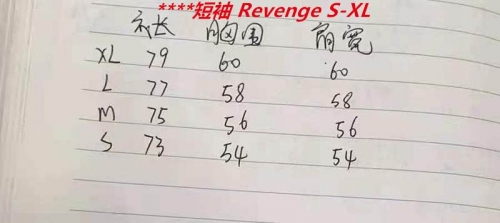 ****短袖 Revenge S-XL
衣长 胸围 肩宽
XL 79 60 60
L 77 58 58
M 75 56 56
S 73 54 54